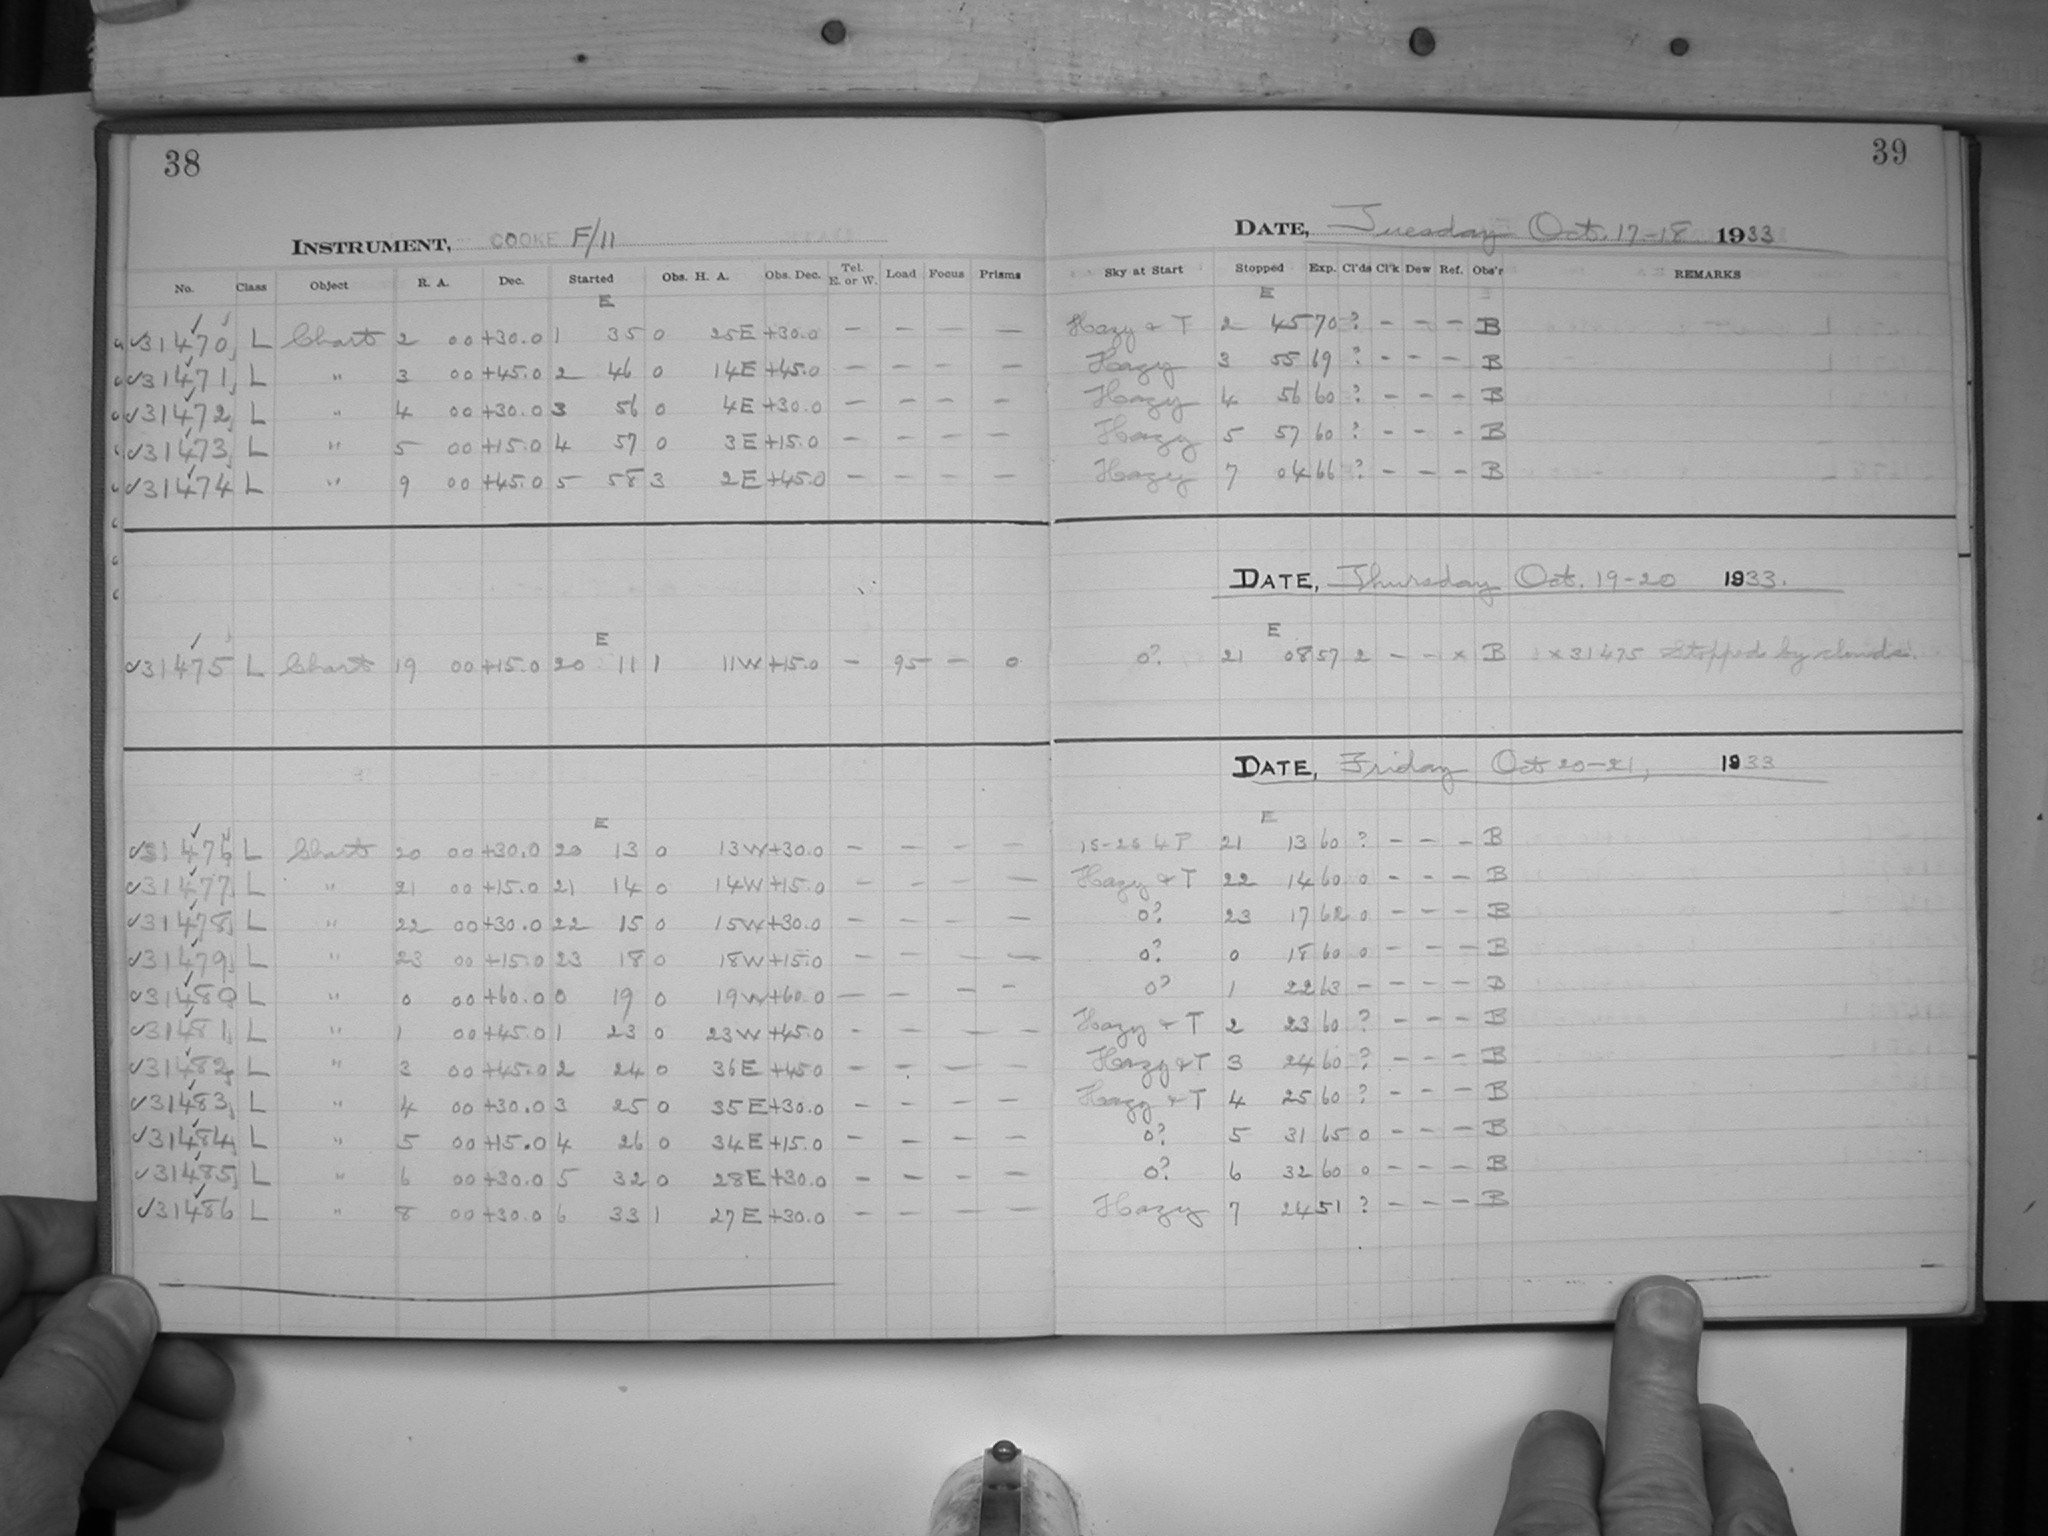 38
INSTRUMENT, COOKE F/11
No. Class Object R. A. Dec. Started Obs. H. A. Obs. Dec. Tel. E. or W. Load Focus Prisms
E
31470 L Chart 2 00 +30.0 1 35 0 25E +30.0 — — — —
31471 L " 3 00 +45.0 2 46 0 14E +45.0 — — — —
31472 L " 4 00 +30.0 3 56 0 4E +30.0 — — — —
31473 L " 5 00 +15.0 4 57 0 3E +15.0 — — — —
31474 L " 9 00 +45.0 5 58 3 2E +45.0 — — — —
E
31475 L Chart 19 00 +15.0 20 11 1 11W +15.0 — 95 — 0
E
31476 L Chart 20 00 +30.0 20 13 0 13W +30.0 — — — —
31477 L " 21 00 +15.0 21 14 0 14W +15.0 — — — —
31478 L " 22 00 +30.0 22 15 0 15W +30.0 — — — —
31479 L " 23 00 +15.0 23 18 0 18W +15.0 — — — —
31480 L " 0 00 +60.0 0 19 0 19W +60.0 — — — —
31481 L " 1 00 +45.0 1 23 0 23W +45.0 — — — —
31482 L " 3 00 +45.0 2 24 0 36E +45.0 — — — —
31483 L " 4 00 +30.0 3 25 0 35E +30.0 — — — —
31484 L " 5 00 +15.0 4 26 0 34E +15.0 — — — —
31485 L " 6 00 +30.0 5 32 0 28E +30.0 — — — —
31486 L " 8 00 +30.0 6 33 1 27E +30.0 — — — —
39
DATE, Tuesday Oct. 17-18 1933
Sky at Start Stopped Exp. Cl'ds Cl'k Dew Ref. Obs'r REMARKS
E
Hazy & T 2 45 70 ? — — — B
Hazy 3 55 69 ? — — — B
Hazy 4 56 60 ? — — — B
Hazy 5 57 60 ? — — — B
Hazy 7 04 66 ? — — — B
DATE, Thursday Oct. 19-20 1933.
E
0? 21 08 57 2 — — x B x 31475 Stopped by clouds.
DATE, Friday Oct 20-21, 1933
E
21 13 60 ? — — — B
Hazy & T 22 14 60 0 — — — B
0? 23 17 62 0 — — — B
0? 0 18 60 0 — — — B
0? 1 22 63 — — — — B
Hazy & T 2 23 60 ? — — — B
Hazy & T 3 24 60 ? — — — B
Hazy & T 4 25 60 ? — — — B
0? 5 31 65 0 — — — B
0? 6 32 60 0 — — — B
Hazy 7 24 51 ? — — — B